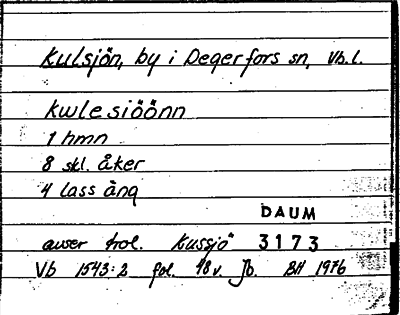 Kulsjön, by i Degerfors sn, Vb.l.
Kwlesiöönn
1 hmn
8 skl. åker
4 lass äng
DAUM
avser trol. Kussjö 3173
Vb 1543:2 fol. 48v. Jb. BH 1976